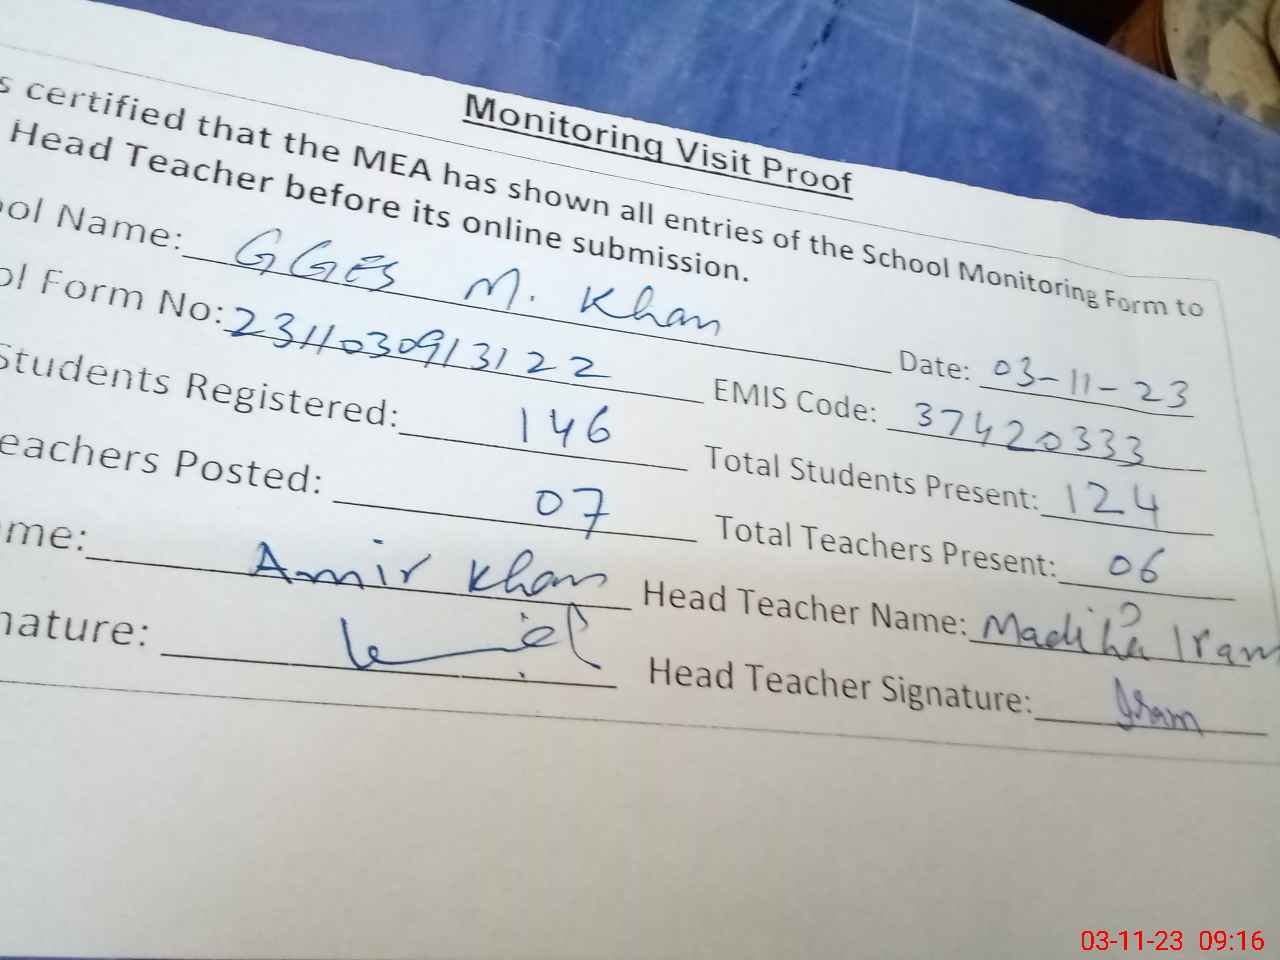 Monitoring Visit Proof
s certified that the MEA has shown all entries of the School Monitoring Form to
Head Teacher before its online submission.
ool Name: GGES M. Khan Date: 03-11-23
ol Form No: 2311030913122 EMIS Code: 37420333
Students Registered: 146 Total Students Present: 124
eachers Posted: 07 Total Teachers Present: 06
ame: Amir Khan Head Teacher Name: Madiha Iram
nature: Head Teacher Signature: Iram
03-11-23 09:16